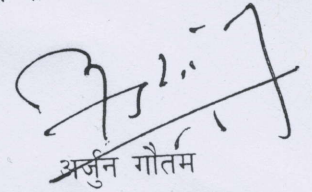 अर्जुन गौतम